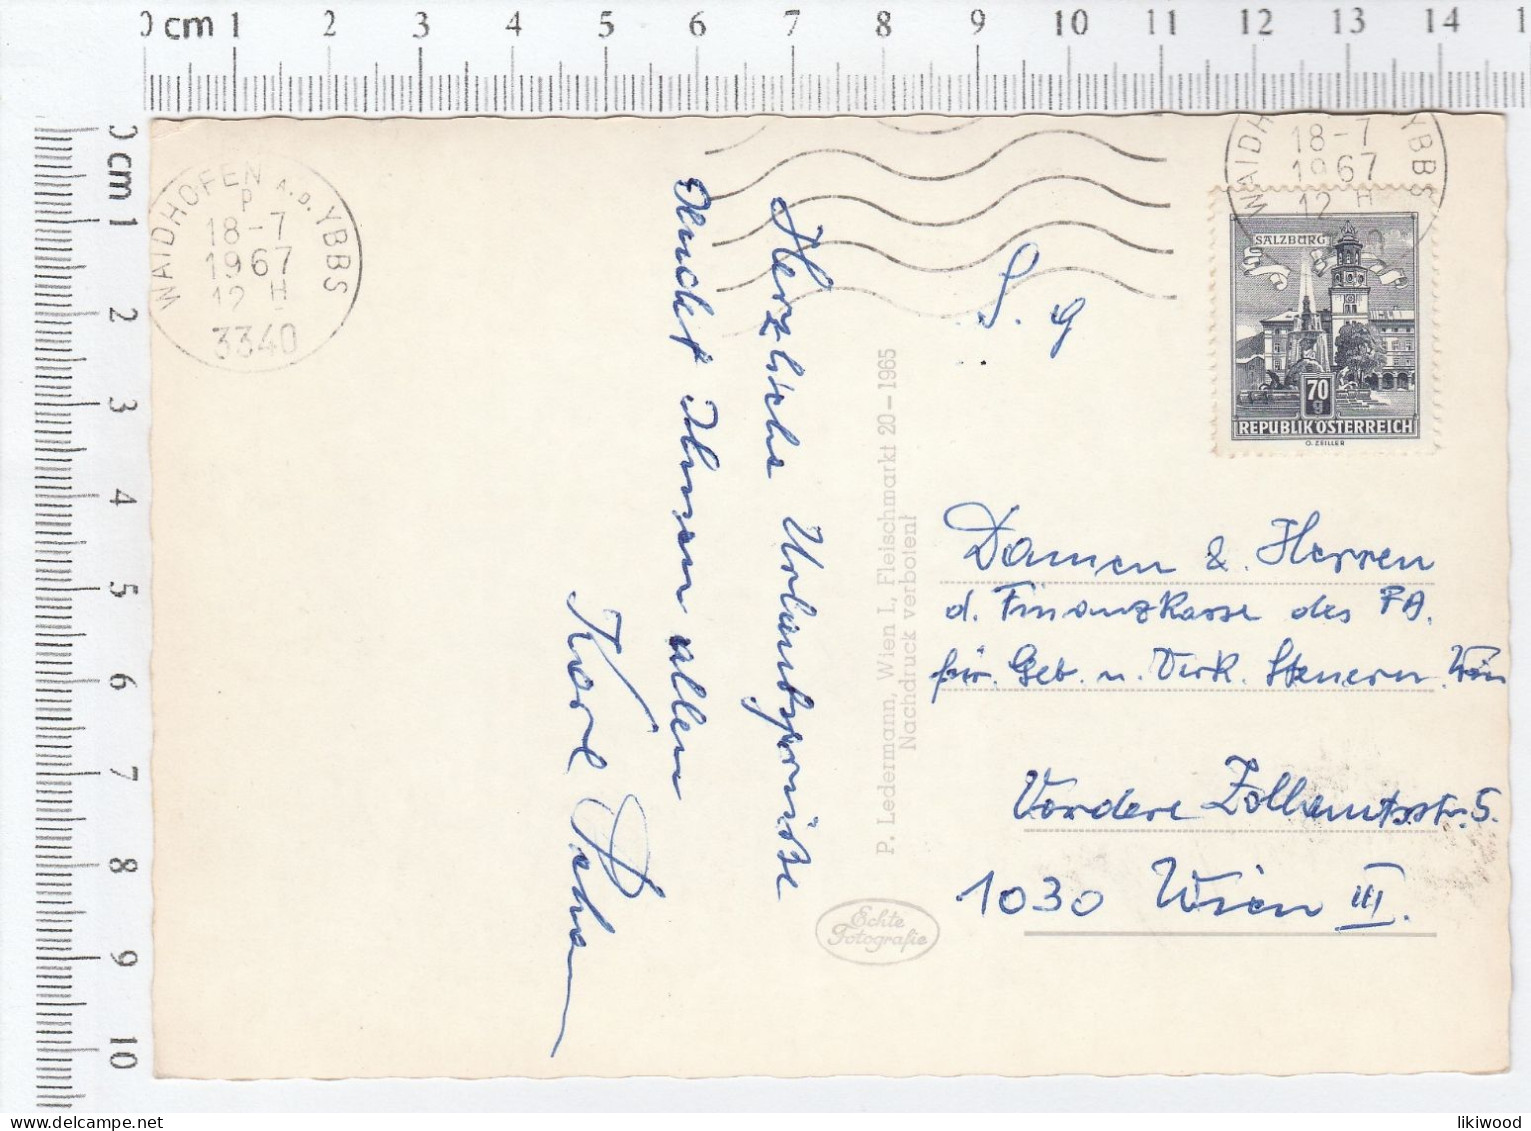 0 cm 1 2 3 4 5 6 7 8 9 10 11 12 13 14 1
0 cm 1 2 3 4 5 6 7 8 9 10
WAIDHOFEN A.D. YBBS
P
18-7
1967
12 H
3340
WAIDH YBBS
18-7
1967
12 H
SALZBURG
70
g
REPUBLIK ÖSTERREICH
O. ZEILLER
Herzliche Urlaubsgrüße
sendet Ihnen allen
Karl
P. Ledermann, Wien I., Fleischmarkt 20-1965
Nachdruck verboten!
Echte
Fotografie
S. g
Damen & Herren
d. Finanzkasse des FA.
für Geb. u. Verk. Steuern Wien
Vordere Zollamtsstr. 5.
1030 Wien III.
likiwood